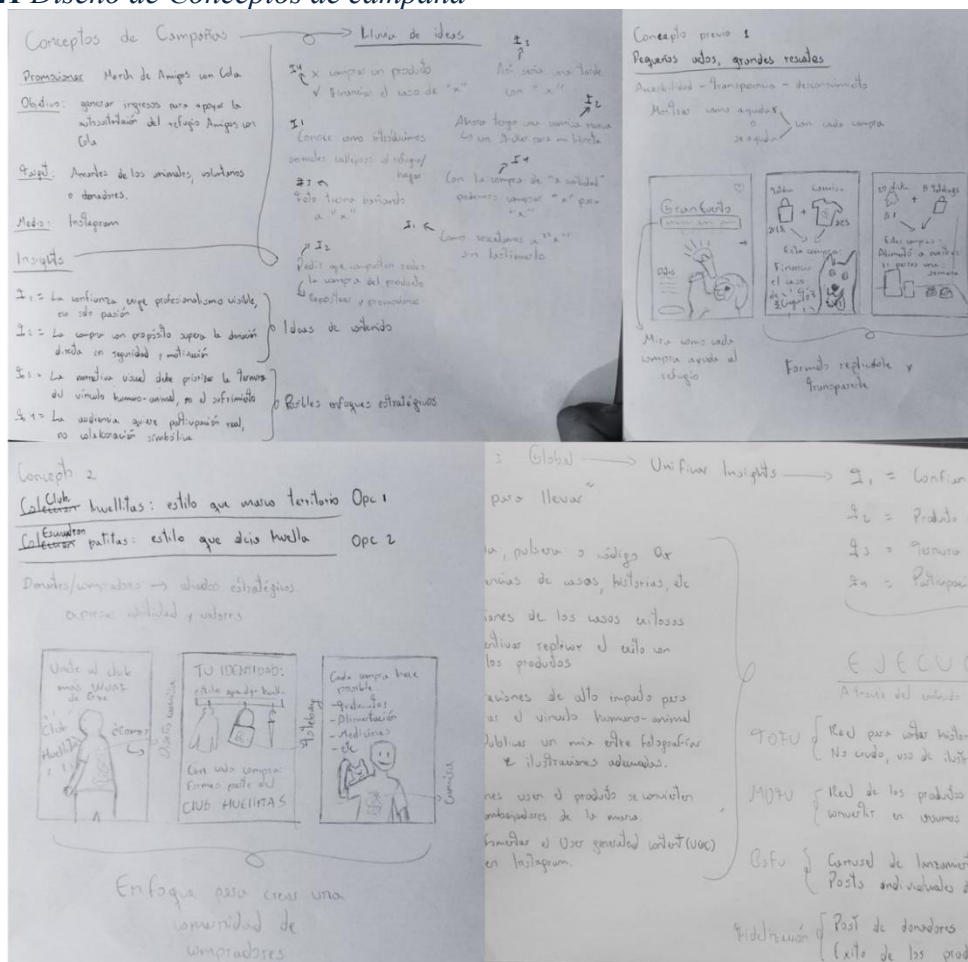 Diseño de Conceptos de campaña
Conceptos de Campañas
Promocionar Merch de Amigos con Cola
Objetivo: generar ingresos para apoyar la
autosustentación del refugio Amigos con
Cola
Target: Amantes de los animales, voluntarios
o donadores.
Medio: Instagram
Insights
I1 = La confianza exige profesionalismo visible,
no solo pasión
I2 = La compra con propósito supera la donación
directa en seguridad y motivación
I3 = La narrativa visual debe priorizar la ternura
del vínculo humano-animal, no el sufrimiento
I4 = La audiencia quiere participación real,
no colaboración simbólica
Lluvia de ideas
I4 x comprar un producto
✓ Financiar el caso de "x"
I1
Conoce como introducimos
animales callejeros al refugio/
hogar
I3
Foto tierna bañando
a "x"
I2
Pedir que compartan
la compra del producto
Repostear y promocionar
Ideas de contenido
Posibles enfoques estratégicos
I3
Así sería una tarde
con "x"
I2
Ahora tengo una camisa nueva
I4
Con la compra de "x cantidad"
podemos comprar "x" para
"x"
I1
Como rescatamos a "x"
sin lastimarlo
Concepto previo 1
Pequeños actos, grandes rescates
Accesibilidad - transparencia - desconocimiento
Mostrar como ayudas
o
se ayuda
con cada compra
Gran Evento
Mira como cada
compra ayuda al
refugio
Camisa
Esta compra:
Financio
el caso
de
Esta compra:
Alimentó a
semana
Formato replicable y
transparente
Concepto 2
Club huellitas: estilo que marca territorio Opc 1
Escuadron patitas: estilo que deja huella Opc 2
Donantes/compradores → aliados estratégicos
Unete al club
más
Club
Huellitas
TU IDENTIDAD:
Con cada compra
Formas parte del
CLUB HUELLITAS
Totebag
Cada compra hace
posible
- Alimentación
- Medicinas
- etc
Camisa
Enfoque para crear una
comunidad de
compradores
Global → Unificar Insights → I1 = Confian
para llevar"
I2 = Producto
I3 = Ternura
I4 = Participaci
a, pulsera o código Qr
encias de casos, historias, etc
iones de los casos exitosos
replicar el exito con
los productos
aciones de alto impacto para
el vínculo humano-animal
Publicar un mix entre fotografías
e ilustraciones adecuadas.
nes usen el producto se convierten
embajadores de la marca.
Fomentar el User generated content (UGC)
en Instagram.
EJECUC
A través del
TOFU
Reel para contar histor
No crudo, uso de ilustr
MOFU
Reel de los productos
convertir en
BOFU
Carrusel de lanzamient
Posts individuales d
Fidelización
Post de donadores
Exito de los prod